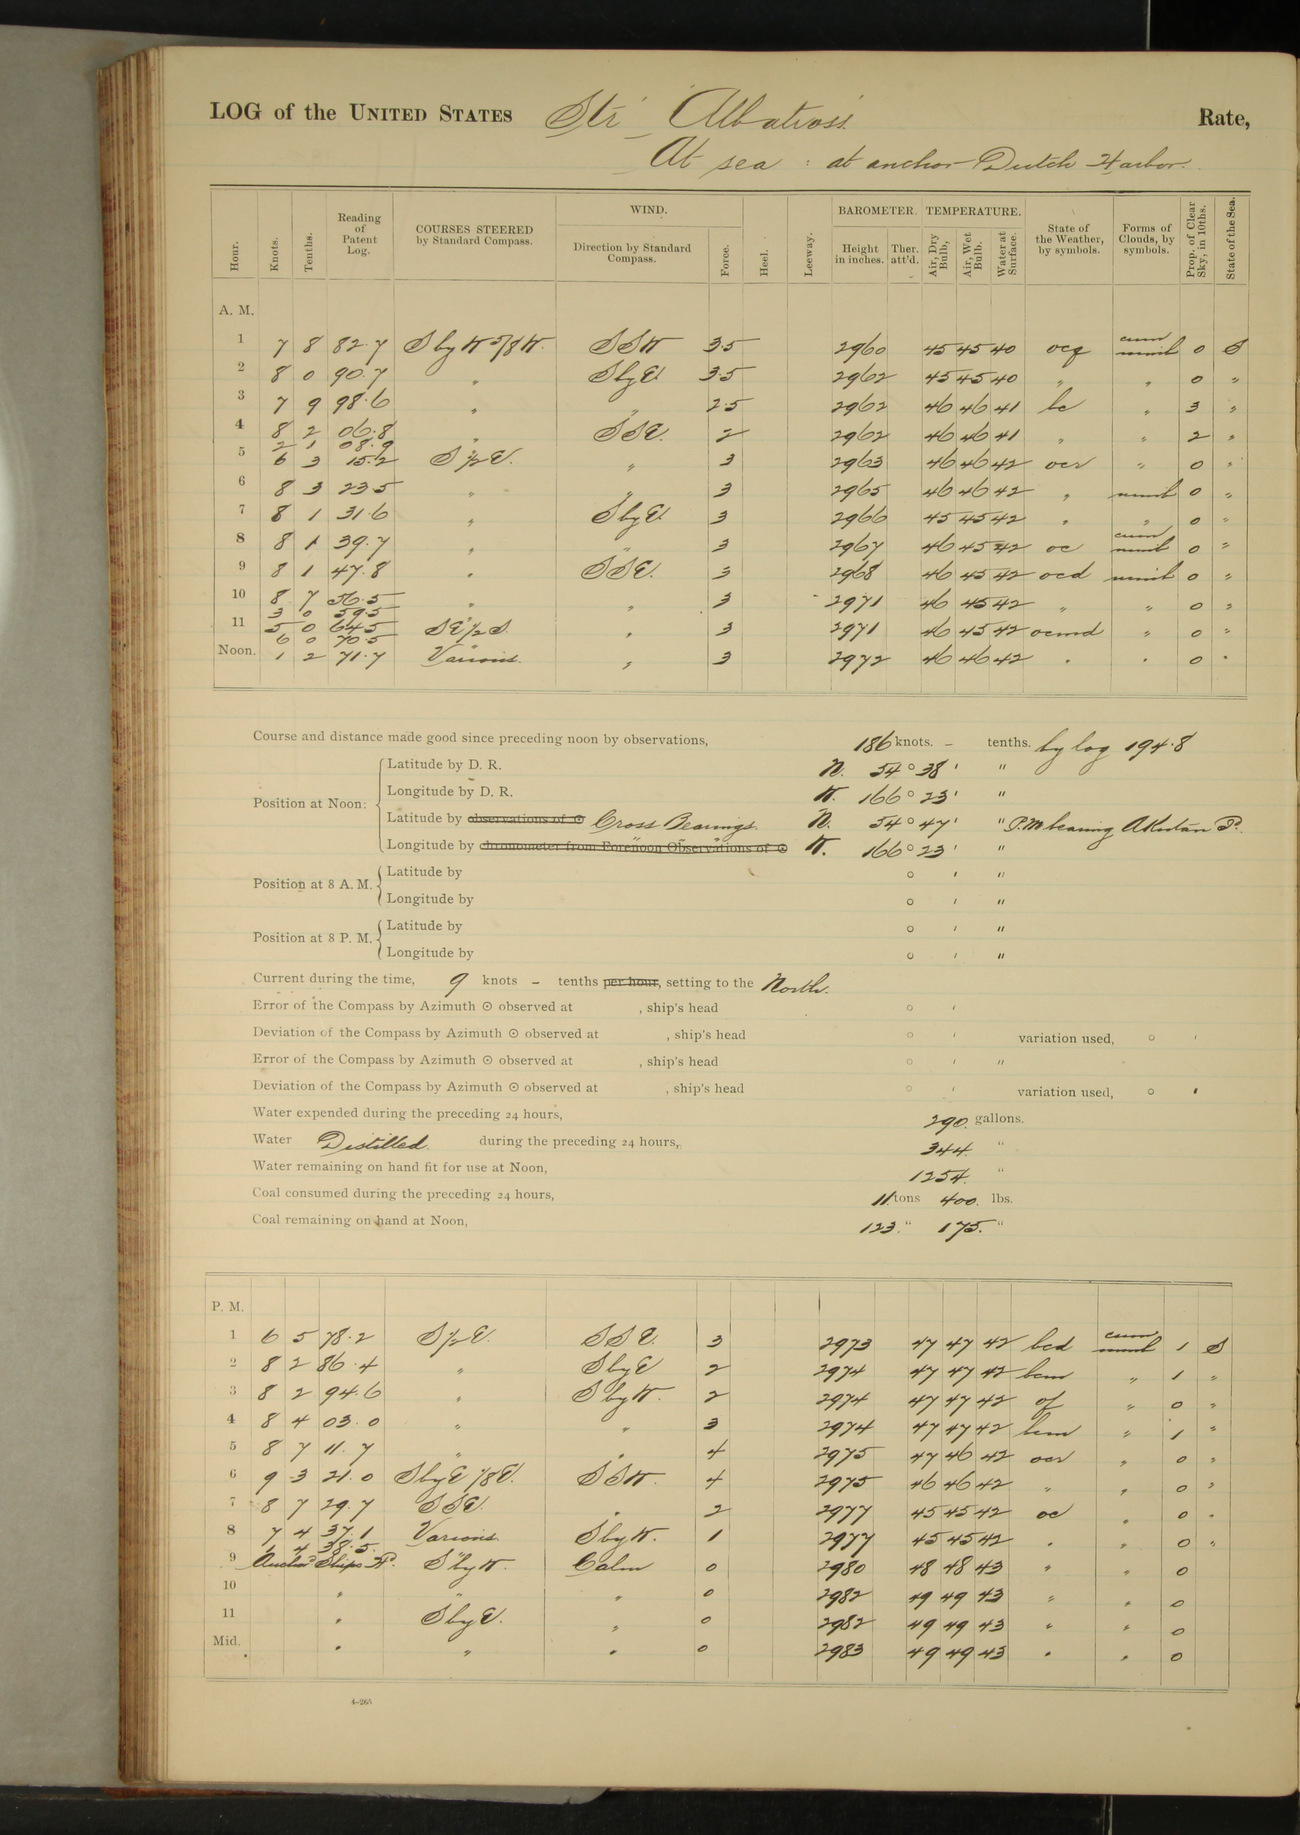 LOG of the UNITED STATES Str "Albatross" Rate,
At sea : at anchor Dutch Harbor.
Hour. Knots. Tenths. Reading of Patent Log. COURSES STEERED by Standard Compass. WIND. Direction by Standard Compass. Force. Heel. Leeway. BAROMETER. Height in inches. Ther. att'd. TEMPERATURE. Air, Dry Bulb, Air, Wet Bulb. Water at Surface. State of the Weather, by symbols. Forms of Clouds, by symbols. Prop. of Clear Sky, in 10ths. State of the Sea.
A. M.
1 7 8 82.7 S by W 5/8 W. SSW 3.5 2960 45 45 40 ocq cum nimb 0 S
2 8 0 90.7 " S by E. 3.5 2962 45 45 40 " " 0 "
3 7 9 98.6 " " 2.5 2962 46 46 41 bc " 3 "
4 8 2 06.8 " SSE. 2 2962 46 46 41 " " 2 "
2 1 08.9
5 6 3 15.2 S 1/2 E. " 3 2963 46 46 42 ocr " 0 "
6 8 3 23.5 " " 3 2965 46 46 42 " nimb 0 "
7 8 1 31.6 " S by E. 3 2966 45 45 42 " " 0 "
8 8 1 39.7 " " 3 2967 46 45 42 oc cum nimb 0 "
9 8 1 47.8 " SSE. 3 2968 46 45 42 ocd nimb 0 "
10 8 7 56.5 " " 3 2971 46 45 42 " " 0 "
3 0 59.5
11 5 0 64.5 SE 1/2 S. " 3 2971 46 45 42 ocmd " 0 "
6 0 70.5 "
Noon. 1 2 71.7 Various. " 3 2972 46 46 42 " " 0 "
Course and distance made good since preceding noon by observations, 186 knots. – tenths. by log 194.8
Position at Noon:
Latitude by D. R. N. 54° 38' "
Longitude by D. R. W. 166° 23' "
Latitude by observations of ☉ Cross Bearings. N. 54° 47' " P.M. bearing Akutan P.
Longitude by chronometer from Forenoon Observations of ☉ W. 166° 23' "
Position at 8 A. M.
Latitude by ° ' "
Longitude by ° ' "
Position at 8 P. M.
Latitude by ° ' "
Longitude by ° ' "
Current during the time, 9 knots – tenths per hour, setting to the North.
Error of the Compass by Azimuth ☉ observed at , ship's head ° '
Deviation of the Compass by Azimuth ☉ observed at , ship's head ° ' variation used, ° '
Error of the Compass by Azimuth ☉ observed at , ship's head ° ' "
Deviation of the Compass by Azimuth ☉ observed at , ship's head ° ' variation used, ° '
Water expended during the preceding 24 hours, 290. gallons.
Water Distilled. during the preceding 24 hours, 344. "
Water remaining on hand fit for use at Noon, 1254. "
Coal consumed during the preceding 24 hours, 11. tons 400. lbs.
Coal remaining on hand at Noon, 123. " 175. "
P. M.
1 6 5 78.2 S 1/2 E. SSE. 3 2973 47 47 42 bcd cum nimb 1 S
2 8 2 86.4 " S by E 2 2974 47 47 42 bcm " 1 "
3 8 2 94.6 " S by W. 2 2974 47 47 42 of " 0 "
4 8 4 03.0 " " 3 2974 47 47 42 bcm " 1 "
5 8 7 11.7 " " 4 2975 47 46 42 ocr " 0 "
6 9 3 21.0 S by E 1/8 E. SSW. 4 2975 46 46 42 " " 0 "
7 8 7 29.7 SSE. " 2 2977 45 45 42 oc " 0 "
8 7 4 37.1 Various. S by W. 1 2977 45 45 42 " " 0 "
1 4 38.5
9 Anchd Ships H. S by W. Calm 0 2980 48 48 43 " " 0
10 " " " 0 2982 49 49 43 " " 0
11 " S by E. " 0 2982 49 49 43 " " 0
Mid. " " " 0 2983 49 49 43 " " 0
4–265